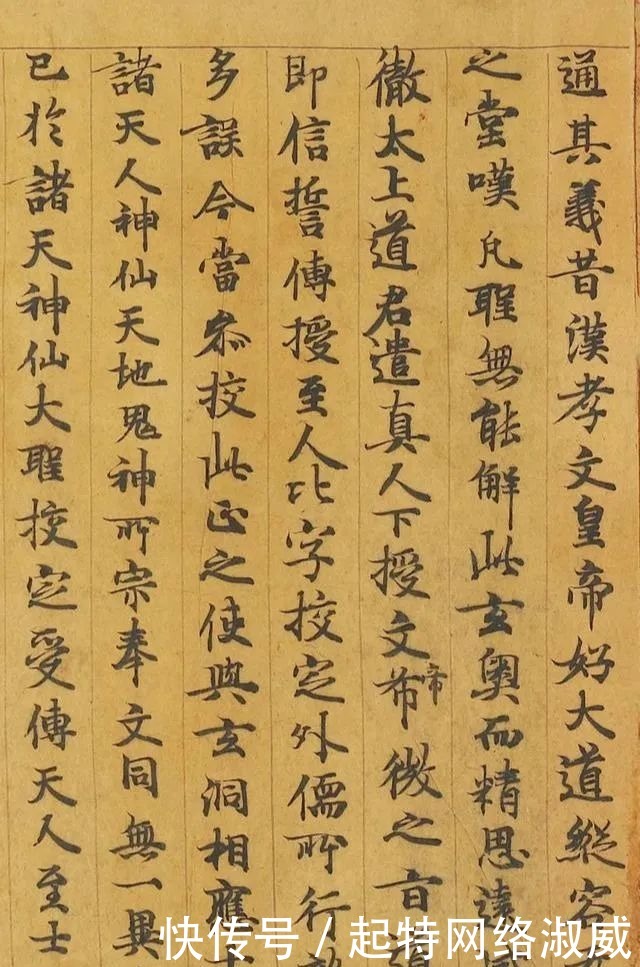 通其義昔漢孝文皇帝好大道縱容
之堂嘆凡聖無能解此玄奧而精思
徹太上道君遣真人下授文帝希微之旨
即信誓傳授至人比字挍定外儒所行
多誤今當參挍此正之使與玄洞相應
諸天人神仙天地鬼神所宗奉文同無一異
已於諸天神仙大聖挍定受傳天人至士
快传号/起特网络淑威